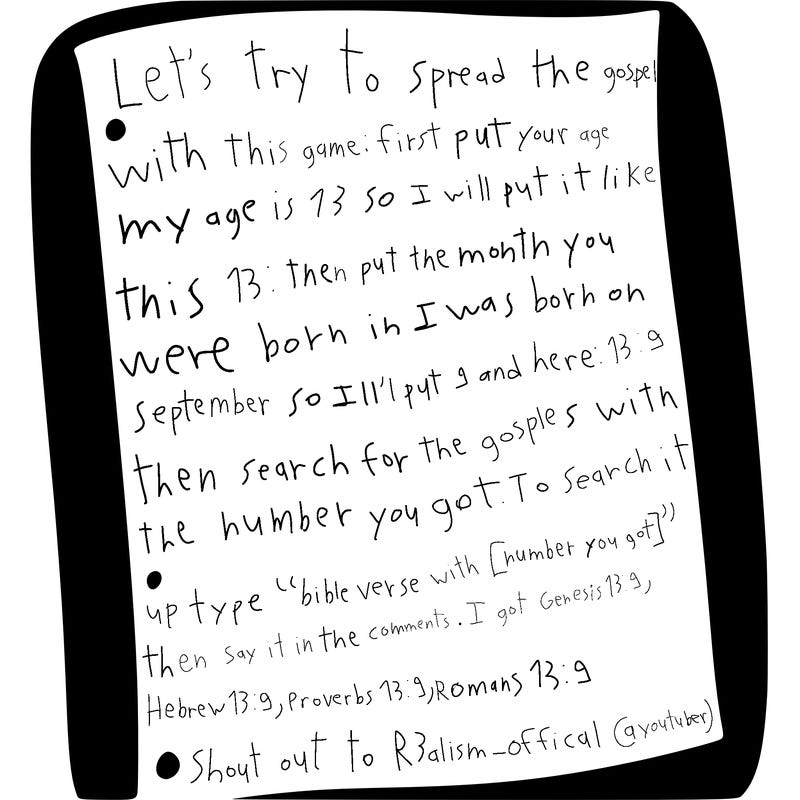 Let's try to spread the gospel
with this game: first put your age
my age is 13 so I will put it like
this 13: then put the month you
were born in I was born on
september so Ill'l put 9 and here: 13:9
then search for the gosples with
the number you got. To search it
up type "bible verse with [number you got]"
then say it in the comments. I got Genesis 13:9,
Hebrew 13:9, Proverbs 13:9, Romans 13:9
Shout out to R3alism_offical (a youtuber)